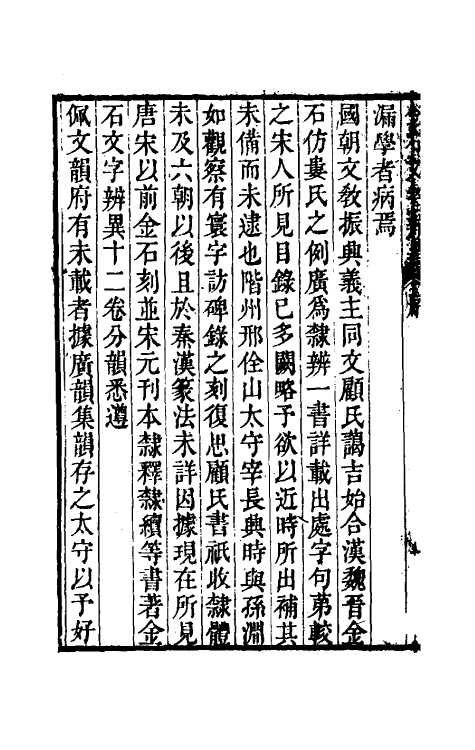 漏學者病焉
國朝文敎振興義主同文顧氏藹吉始合漢魏晉金
石仿婁氏之例廣爲隸辨一書詳載出處字句第較
之宋人所見目錄已多闕略予欲以近時所出補其
未備而未逮也階州邢佺山太守宰長興時與孫淵
如觀察有寰宇訪碑錄之刻復思顧氏書祇收隸體
未及六朝以後且於秦漢篆法未詳因據現在所見
唐宋以前金石刻並宋元刊本隸釋隸續等書著金
石文字辨異十二卷分韻悉遵
佩文韻府有未載者據廣韻集韻存之太守以予好